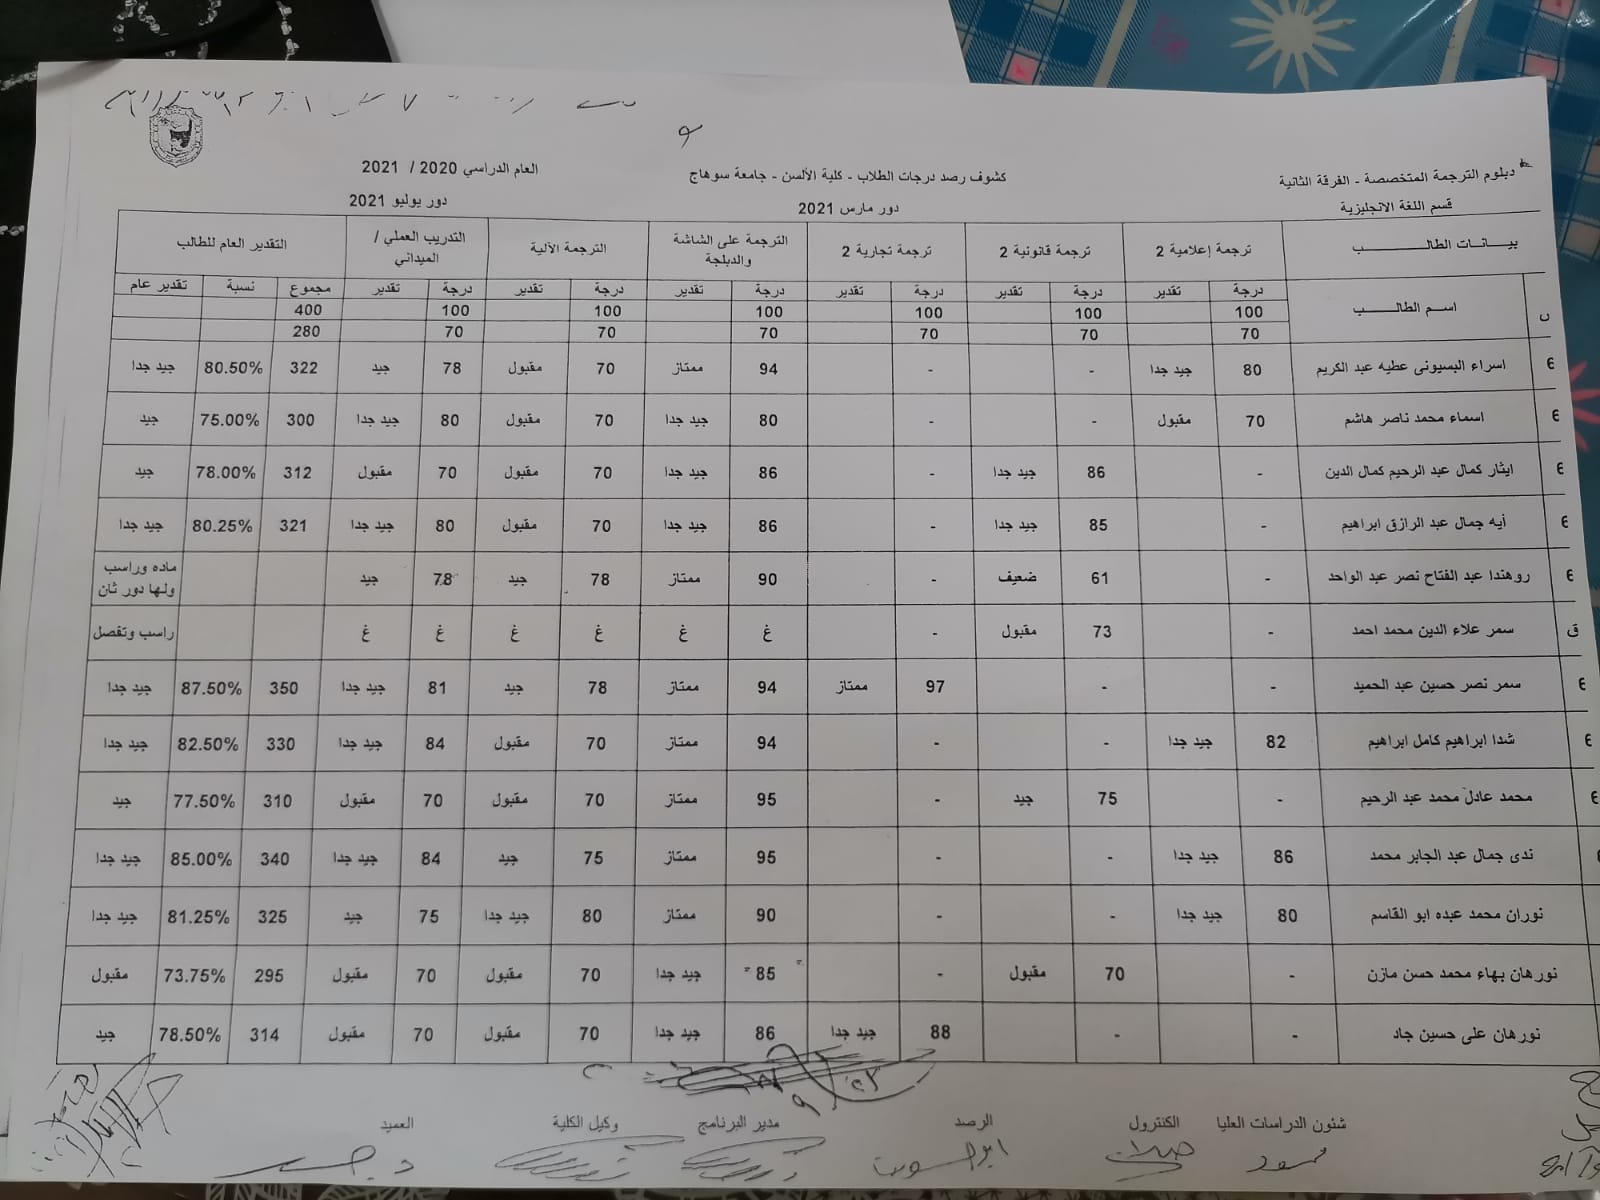 دبلوم الترجمة المتخصصة - الفرقة الثانية
كشوف رصد درجات الطلاب - كلية الألسن - جامعة سوهاج
العام الدراسي 2020 / 2021
قسم اللغة الانجليزية
دور مارس 2021
دور يوليو 2021
بيانات الطالب ترجمة إعلامية 2 ترجمة قانونية 2 ترجمة تجارية 2 الترجمة على الشاشة والدبلجة الترجمة الآلية التدريب العملي / الميداني التقدير العام للطالب
اسم الطالب درجة تقدير درجة تقدير درجة تقدير درجة تقدير درجة تقدير درجة تقدير مجموع نسبة تقدير عام
100 100 100 100 100 100 400
70 70 70 70 70 70 280
ع اسراء البسيونى عطيه عبد الكريم 80 جيد جدا - - 94 ممتاز 70 مقبول 78 جيد 322 80.50% جيد جدا
ع اسماء محمد ناصر هاشم 70 مقبول - - 80 جيد جدا 70 مقبول 80 جيد جدا 300 75.00% جيد
ع ايثار كمال عبد الرحيم كمال الدين - 86 جيد جدا - 86 جيد جدا 70 مقبول 70 مقبول 312 78.00% جيد
ع أيه جمال عبد الرازق ابراهيم - 85 جيد جدا - 86 جيد جدا 70 مقبول 80 جيد جدا 321 80.25% جيد جدا
ع روهندا عبد الفتاح نصر عبد الواحد - 61 ضعيف - 90 ممتاز 78 جيد 78 جيد ماده وراسب ولها دور ثان
ق سمر علاء الدين محمد احمد - 73 مقبول - غ غ غ غ غ غ راسب وتفصل
ع سمر نصر حسين عبد الحميد - - 97 ممتاز 94 ممتاز 78 جيد 81 جيد جدا 350 87.50% جيد جدا
ع شدا ابراهيم كامل ابراهيم 82 جيد جدا - - 94 ممتاز 70 مقبول 84 جيد جدا 330 82.50% جيد جدا
ع محمد عادل محمد عبد الرحيم - 75 جيد - 95 ممتاز 70 مقبول 70 مقبول 310 77.50% جيد
ندى جمال عبد الجابر محمد 86 جيد جدا - - 95 ممتاز 75 جيد 84 جيد جدا 340 85.00% جيد جدا
نوران محمد عبده ابو القاسم 80 جيد جدا - - 90 ممتاز 80 جيد جدا 75 جيد 325 81.25% جيد جدا
نورهان بهاء محمد حسن مازن - 70 مقبول - 85 جيد جدا 70 مقبول 70 مقبول 295 73.75% مقبول
نورهان على حسين جاد - - 88 جيد جدا 86 جيد جدا 70 مقبول 70 مقبول 314 78.50% جيد
شئون الدراسات العليا الكنترول الرصد مدير البرنامج وكيل الكلية العميد